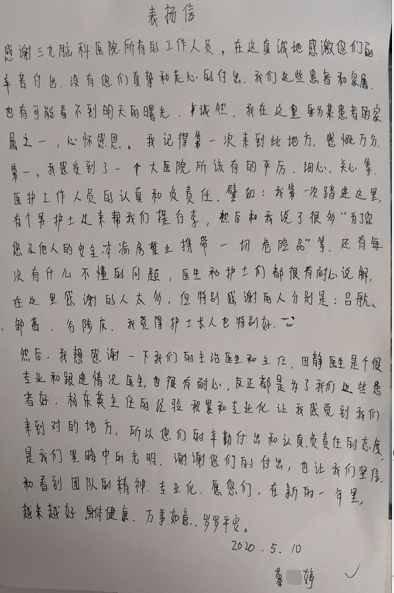 表扬信
感谢三九脑科医院所有的工作人员。在这真诚地感激您们的
辛苦付出,没有您们真挚和走心的付出,我们这些患者和家属
也有可能看不到明天的曙光,诚然,我在这里身为某患者的家
属之一,心怀感恩。我记得第一次来到此地方,感慨万分,
第一、我感受到了一个大医院所该有的严厉、细心、关心等,
医护工作人员的认真和负责任,譬如:我第一次踏进这里,
有个男护士过来帮我们提行李,然后和我说了很多“为了您
您及他人的安全凉病房禁止携带一切危险品”等,还有每
次有什么不懂的问题,医生和护士们都很有耐心说解,
在这里感谢的人太多,但特别感谢的人分别是:吕航、
邹茜、谷陈庆,我觉得护士长人也特别好。
然后,我想感谢一下我们的主治医生和主任,田静医生是个很
专业和跟进情况医生,也很有耐心,反正都是为了我们这些患
者好,杨东英主任的经验积累和专业化让我感觉到我们
来到对的地方,所以您们的辛勤付出和认真负责任的态度
是我们黑暗中的光明,谢谢您们的付出,也让我们坚信
和看到团队的精神、专业化,愿您们,在新的一年里,
越来越好,身体健康,万事如意,岁岁平安。
2020.5.10
蔡 婷